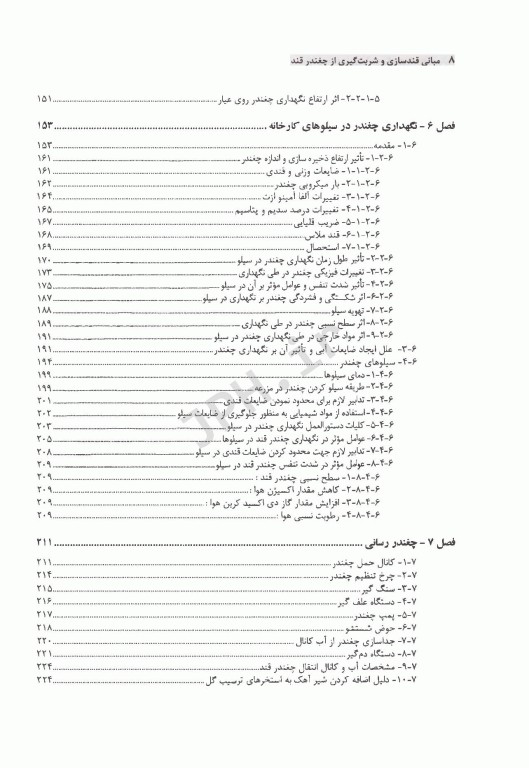 ۸ مبانی قندسازی و شربت‌گیری از چغندر قند
۵-۱-۲-۲- اثر ارتفاع نگهداری چغندر روی عیار ۱۵۱
فصل ۶ - نگهداری چغندر در سیلوهای کارخانه ۱۵۳
۶-۱- مقدمه ۱۵۳
۶-۲-۱- تأثیر ارتفاع ذخیره سازی و اندازه چغندر ۱۶۱
۶-۲-۱-۱- ضایعات وزنی و قندی ۱۶۱
۶-۲-۱-۲- بار میکروبی چغندر ۱۶۲
۶-۲-۱-۳- تغییرات آلفا آمینو ازت ۱۶۴
۶-۲-۱-۴- تغییرات درصد سدیم و پتاسیم ۱۶۵
۶-۲-۱-۵- ضریب قلیایی ۱۶۷
۶-۲-۱-۶- قند ملاس ۱۶۸
۶-۲-۱-۷- استحصال ۱۶۹
۶-۲-۲- تأثیر طول زمان نگهداری چغندر در سیلو ۱۷۰
۶-۲-۳- تغییرات فیزیکی چغندر در طی نگهداری ۱۷۳
۶-۲-۴- تأثیر شدت تنفس و عوامل مؤثر بر آن در سیلو ۱۷۵
۶-۲-۶- اثر شکستگی و فشردگی چغندر بر نگهداری در سیلو ۱۸۷
۶-۲-۷- تهویه سیلو ۱۸۸
۶-۲-۸- اثر سطح نسبی چغندر در طی نگهداری ۱۸۹
۶-۲-۹- اثر مواد خارجی در طی نگهداری چغندر در سیلو ۱۹۱
۶-۳- علل ایجاد ضایعات آبی و تأثیر آن بر نگهداری چغندر ۱۹۱
۶-۴- سیلوهای چغندر ۱۹۴
۶-۴-۱- دمای سیلوها ۱۹۹
۶-۴-۲- طریقه سیلو کردن چغندر در مزرعه ۱۹۹
۶-۴-۳- تدابیر لازم برای محدود نمودن ضایعات قندی ۲۰۱
۶-۴-۴- استفاده از مواد شیمیایی به منظور جلوگیری از ضایعات سیلو
۶-۴-۵- کلیات دستورالعمل نگهداری چغندر در سیلو ۲۰۳
۶-۴-۶- عوامل مؤثر در نگهداری چغندر قند در سیلوها ۲۰۵
۶-۴-۷- تدابیر لازم جهت محدود کردن ضایعات قندی در سیلو ۲۰۸
۶-۴-۸- عوامل مؤثر در شدت تنفس چغندر قند در سیلو ۲۰۹
۶-۴-۸-۱- سطح نسبی چغندر قند : ۲۰۹
۶-۴-۸-۲- کاهش مقدار اکسیژن هوا : ۲۰۹
۶-۴-۸-۳- افزایش مقدار گاز دی اکسید کربن هوا : ۲۰۹
۶-۴-۸-۴- رطوبت نسبی هوا : ۲۰۹
فصل ۷ - چغندر رسانی ۲۱۱
۷-۱- کانال حمل چغندر ۲۱۱
۷-۲- چرخ تنظیم چغندر ۲۱۴
۷-۳- سنگ گیر ۲۱۵
۷-۴- دستگاه علف گیر ۲۱۶
۷-۵- پمپ چغندر ۲۱۷
۷-۶- حوض شستشو ۲۱۸
۷-۷- جداسازی چغندر از آب کانال ۲۲۰
۷-۸- دستگاه دم‌گیر ۲۲۱
۷-۹- مشخصات آب و کانال انتقال چغندر قند ۲۲۴
۷-۱۰- دلیل اضافه کردن شیر آهک به استخرهای ترسیب گل ۲۲۴